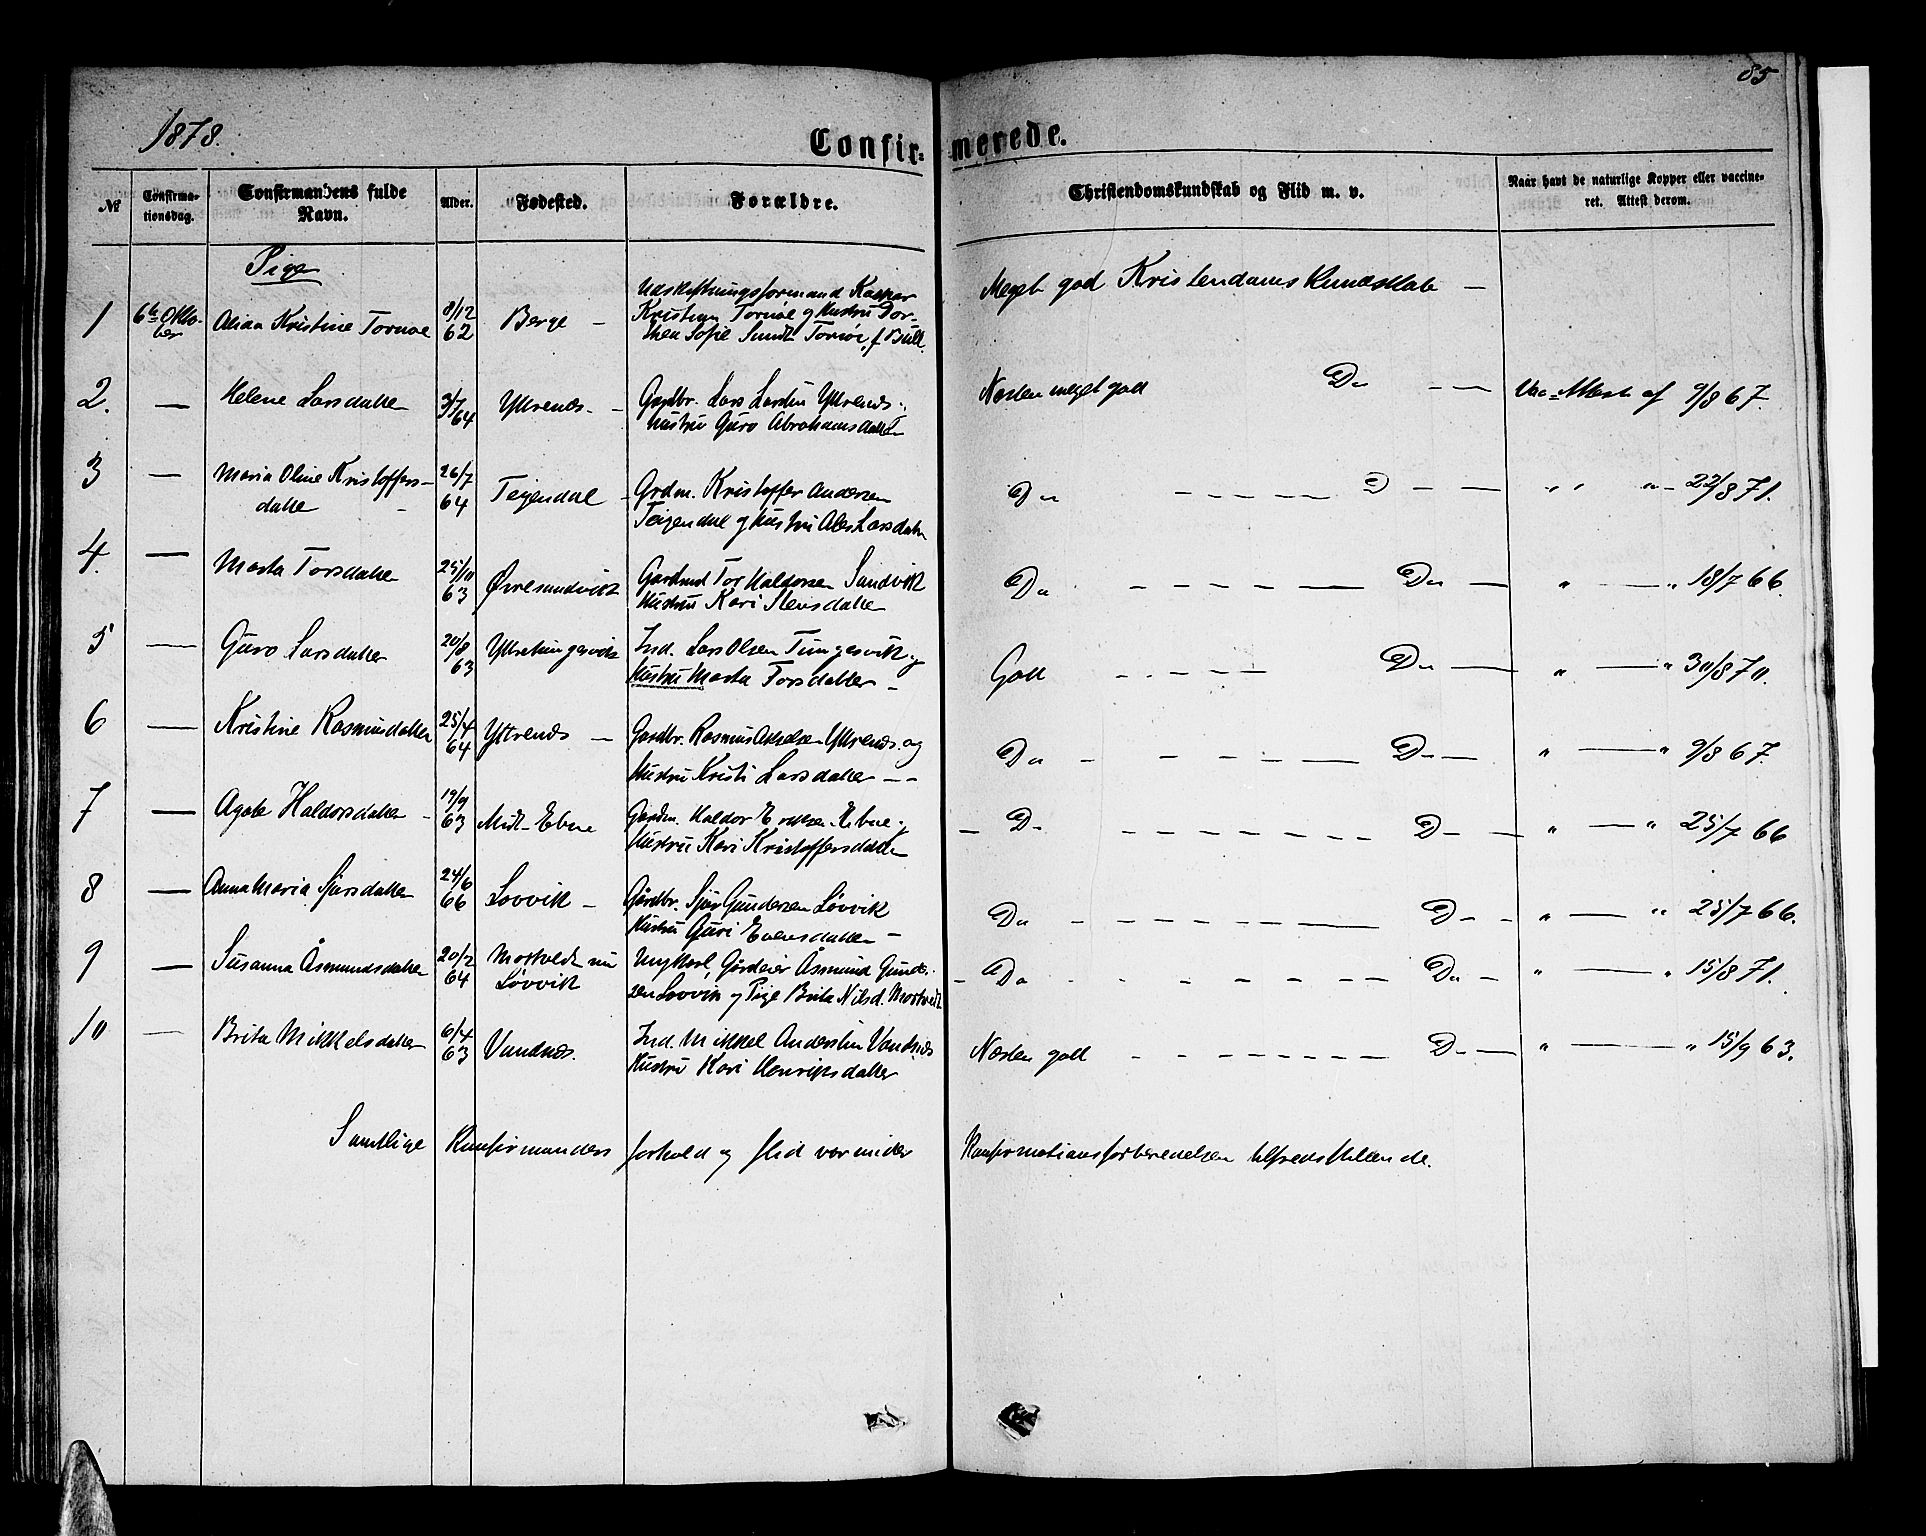 85
1878.
Confir- merede.
№ Confirma-tionsdag. Confirmandens fulde Navn. Alder. Fødested. Forældre. Christendomskundskab og Flid m. v. Naar havt de naturlige Kopper eller vaccineret. Attest derom.
Piger
1 6te Oktober Alida Kristine Tornøe 8/12 62 Berge – Udskiftningsformand Kasper Meget god Kristendoms Kundskab –
Kristian Tornøe og Hustru Dor-
thea Sofie Sundt Tornøe, f. Bull.
2. — Helene Larsdatter 3/7 64 Yttrenæs – Gardbr. Lars Larsen Yttrenæs. Næsten meget god Do — — Vac-Attest af 9/8 67.
Hustru Guro Abrahamsdatter
3 — Maria Oline Kristoffers- 26/7 64 Teigendal – Grdm. Kristoffer Andersen Do — — D — — „ „ „ 22/8 71.
datter Teigendal og Hustru Ales Larsdatter
4. — Marta Torsdatter 25/11 63 Øvresundvik Gardmd Tor Haldorsen Sandvik Do — — Do — „ — „ 18/7 66.
Hustru Kari Stensdatter
5 — Guro Larsdatter 20/8 63 Ytretungesvik Ind. Lars Olsen Tungesvik og God — — Do — „ — „ 30/8 70.
Hustru Marta Torsdatter –
6 — Kristine Rasmusdatter 25/4 64 Yttrenæs — Gardbr. Rasmus Akselsen Yttrenæs. og Do — — Do — „ — „ 9/8 67.
Hustru Kristi Larsdatter – –
7 — Agate Haldorsdatter – 19/9 63 Mid-Ebne Gardm. Haldor Eriksen Ebne og – D – — — Do — „ — „ 25/7 66
Hustru Kari Kristoffersdatter
8 — Anna Maria Sjursdatter 24/6 66 Løvvik – Gårdbr. Sjur Gundersen Løvvik Do — — D – – „ — „ 25/7 66.
Hustru Guri Evensdatter –
9 — Susanna Åsmundsdatter 20/2 64 Mostvedt nu Ungkarl, Gårdeier Åsmund Gunder- – Do — — Do – „ — „ 15/8 71.
Løvvik sen Løvvik og Pige Brita Nilsd. Mostvedt
10 — Brita Mikkelsdatter 6/4 63 Vandnæs. Ind. Mikkel Andersen Vandnæs Næsten god — — Do — „ — „ 15/9 63.
Hustru Kari Henriksdatter
Samtlige Konfirmanders forhold og flid var under Konfirmationsforberedelsen tilfredsstillende.